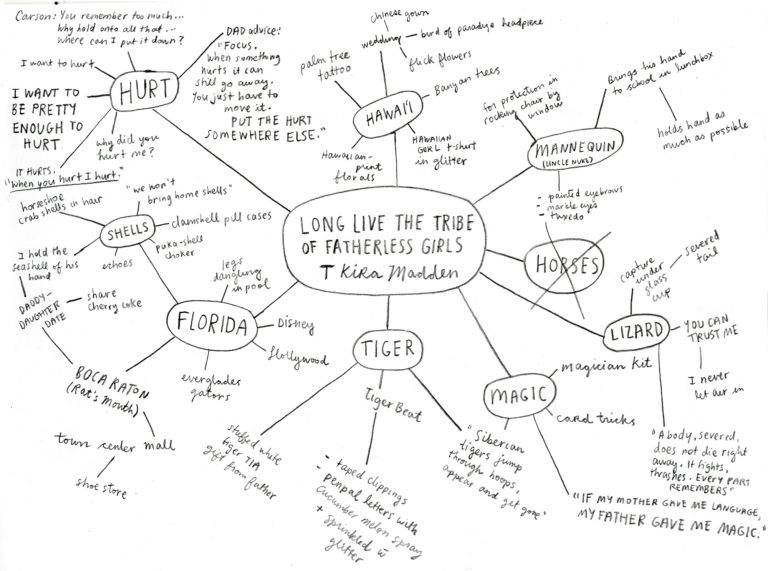 Carson: You remember too much...
Why hold onto all that...
where can I put it down?
I want to hurt
I WANT TO
BE PRETTY
ENOUGH TO
HURT
HURT
DAD advice:
"FOCUS.
when something
hurts it can
still go away.
You just have to
move it.
PUT THE HURT
SOMEWHERE ELSE."
why did you
hurt me?
IT HURTS.
"When you hurt I hurt."
chinese gown
wedding
bird of paradise headpiece
flick flowers
palm tree
tattoo
Banyan trees
HAWAI'I
Hawaiian-
print
florals
HAWAIIAN
GIRL t-shirt
in glitter
for protection in
rocking chair by
window
Brings his hand
to school in lunchbox
holds hand as
much as possible
MANNEQUIN
(UNCLE NUKE)
- painted eyebrows
- marble eyes
- tuxedo
LONG LIVE THE TRIBE
OF FATHERLESS GIRLS
T Kira Madden
HORSES
horseshoe
crab shells in hair
"we won't
bring home shells"
SHELLS
clamshell pill cases
puka-shell
choker
echoes
I hold the
seashell of his
hand
DADDY-
DAUGHTER
DATE
share
cherry coke
legs
dangling
in pool
FLORIDA
Disney
flollywood
everglades
gators
BOCA RATON
(Rat's Mouth)
town center mall
shoe store
TIGER
Tiger Beat
stuffed white
tiger TIA
gift from father
- taped clippings
- penpal letters with
cucumber melon spray
+ sprinkled w
glitter
"Siberian
tigers jump
through hoops,
appear and get gone"
MAGIC
magician kit
card tricks
"IF MY MOTHER GAVE ME LANGUAGE,
MY FATHER GAVE ME MAGIC."
LIZARD
capture
under
glass
cup
severed
tail
YOU CAN
TRUST ME
I never
let our in
"A body, severed,
does not die right
away. It fights,
thrashes. EVERY PART
REMEMBERS"